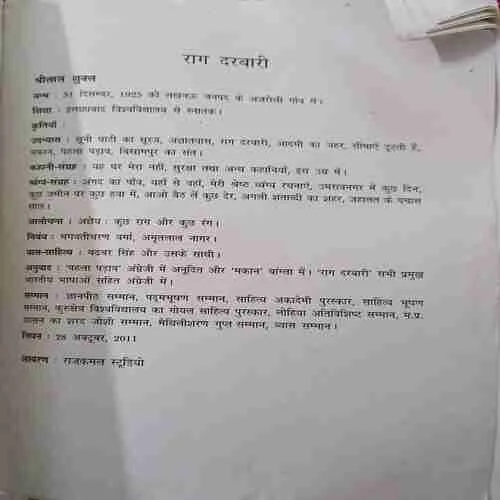 राग दरबारी
श्रीलाल शुक्ल
जन्म : 31 दिसम्बर, 1925 को लखनऊ जनपद के अतरौली गाँव में।
शिक्षा : इलाहाबाद विश्वविद्यालय से स्नातक।
कृतियाँ :
उपन्यास : सूनी घाटी का सूरज, अज्ञातवास, राग दरबारी, आदमी का ज़हर, सीमाएँ टूटती हैं,
मकान, पहला पड़ाव, बिस्रामपुर का संत।
कहानी-संग्रह : यह घर मेरा नहीं, सुरक्षा तथा अन्य कहानियाँ, इस उम्र में।
व्यंग्य-संग्रह : अंगद का पाँव, यहाँ से वहाँ, मेरी श्रेष्ठ व्यंग्य रचनाएँ, उमरावनगर में कुछ दिन,
कुछ ज़मीन पर कुछ हवा में, आओ बैठ लें कुछ देर, अगली शताब्दी का शहर, जहालत के पचास
साल।
आलोचना : अज्ञेय : कुछ राग और कुछ रंग।
निबंध : भगवतीचरण वर्मा, अमृतलाल नागर।
बाल-साहित्य : बब्बर सिंह और उसके साथी।
अनुवाद : 'पहला पड़ाव' अंग्रेजी में अनूदित और 'मकान' बांग्ला में। 'राग दरबारी' सभी प्रमुख
भारतीय भाषाओं सहित अंग्रेजी में।
सम्मान : ज्ञानपीठ सम्मान, पद्मभूषण सम्मान, साहित्य अकादेमी पुरस्कार, साहित्य भूषण
सम्मान, कुरुक्षेत्र विश्वविद्यालय का गोयल साहित्य पुरस्कार, लोहिया अतिविशिष्ट सम्मान, म.प्र.
शासन का शरद जोशी सम्मान, मैथिलीशरण गुप्त सम्मान, व्यास सम्मान।
निधन : 28 अक्टूबर, 2011
आवरण : राजकमल स्टूडियो